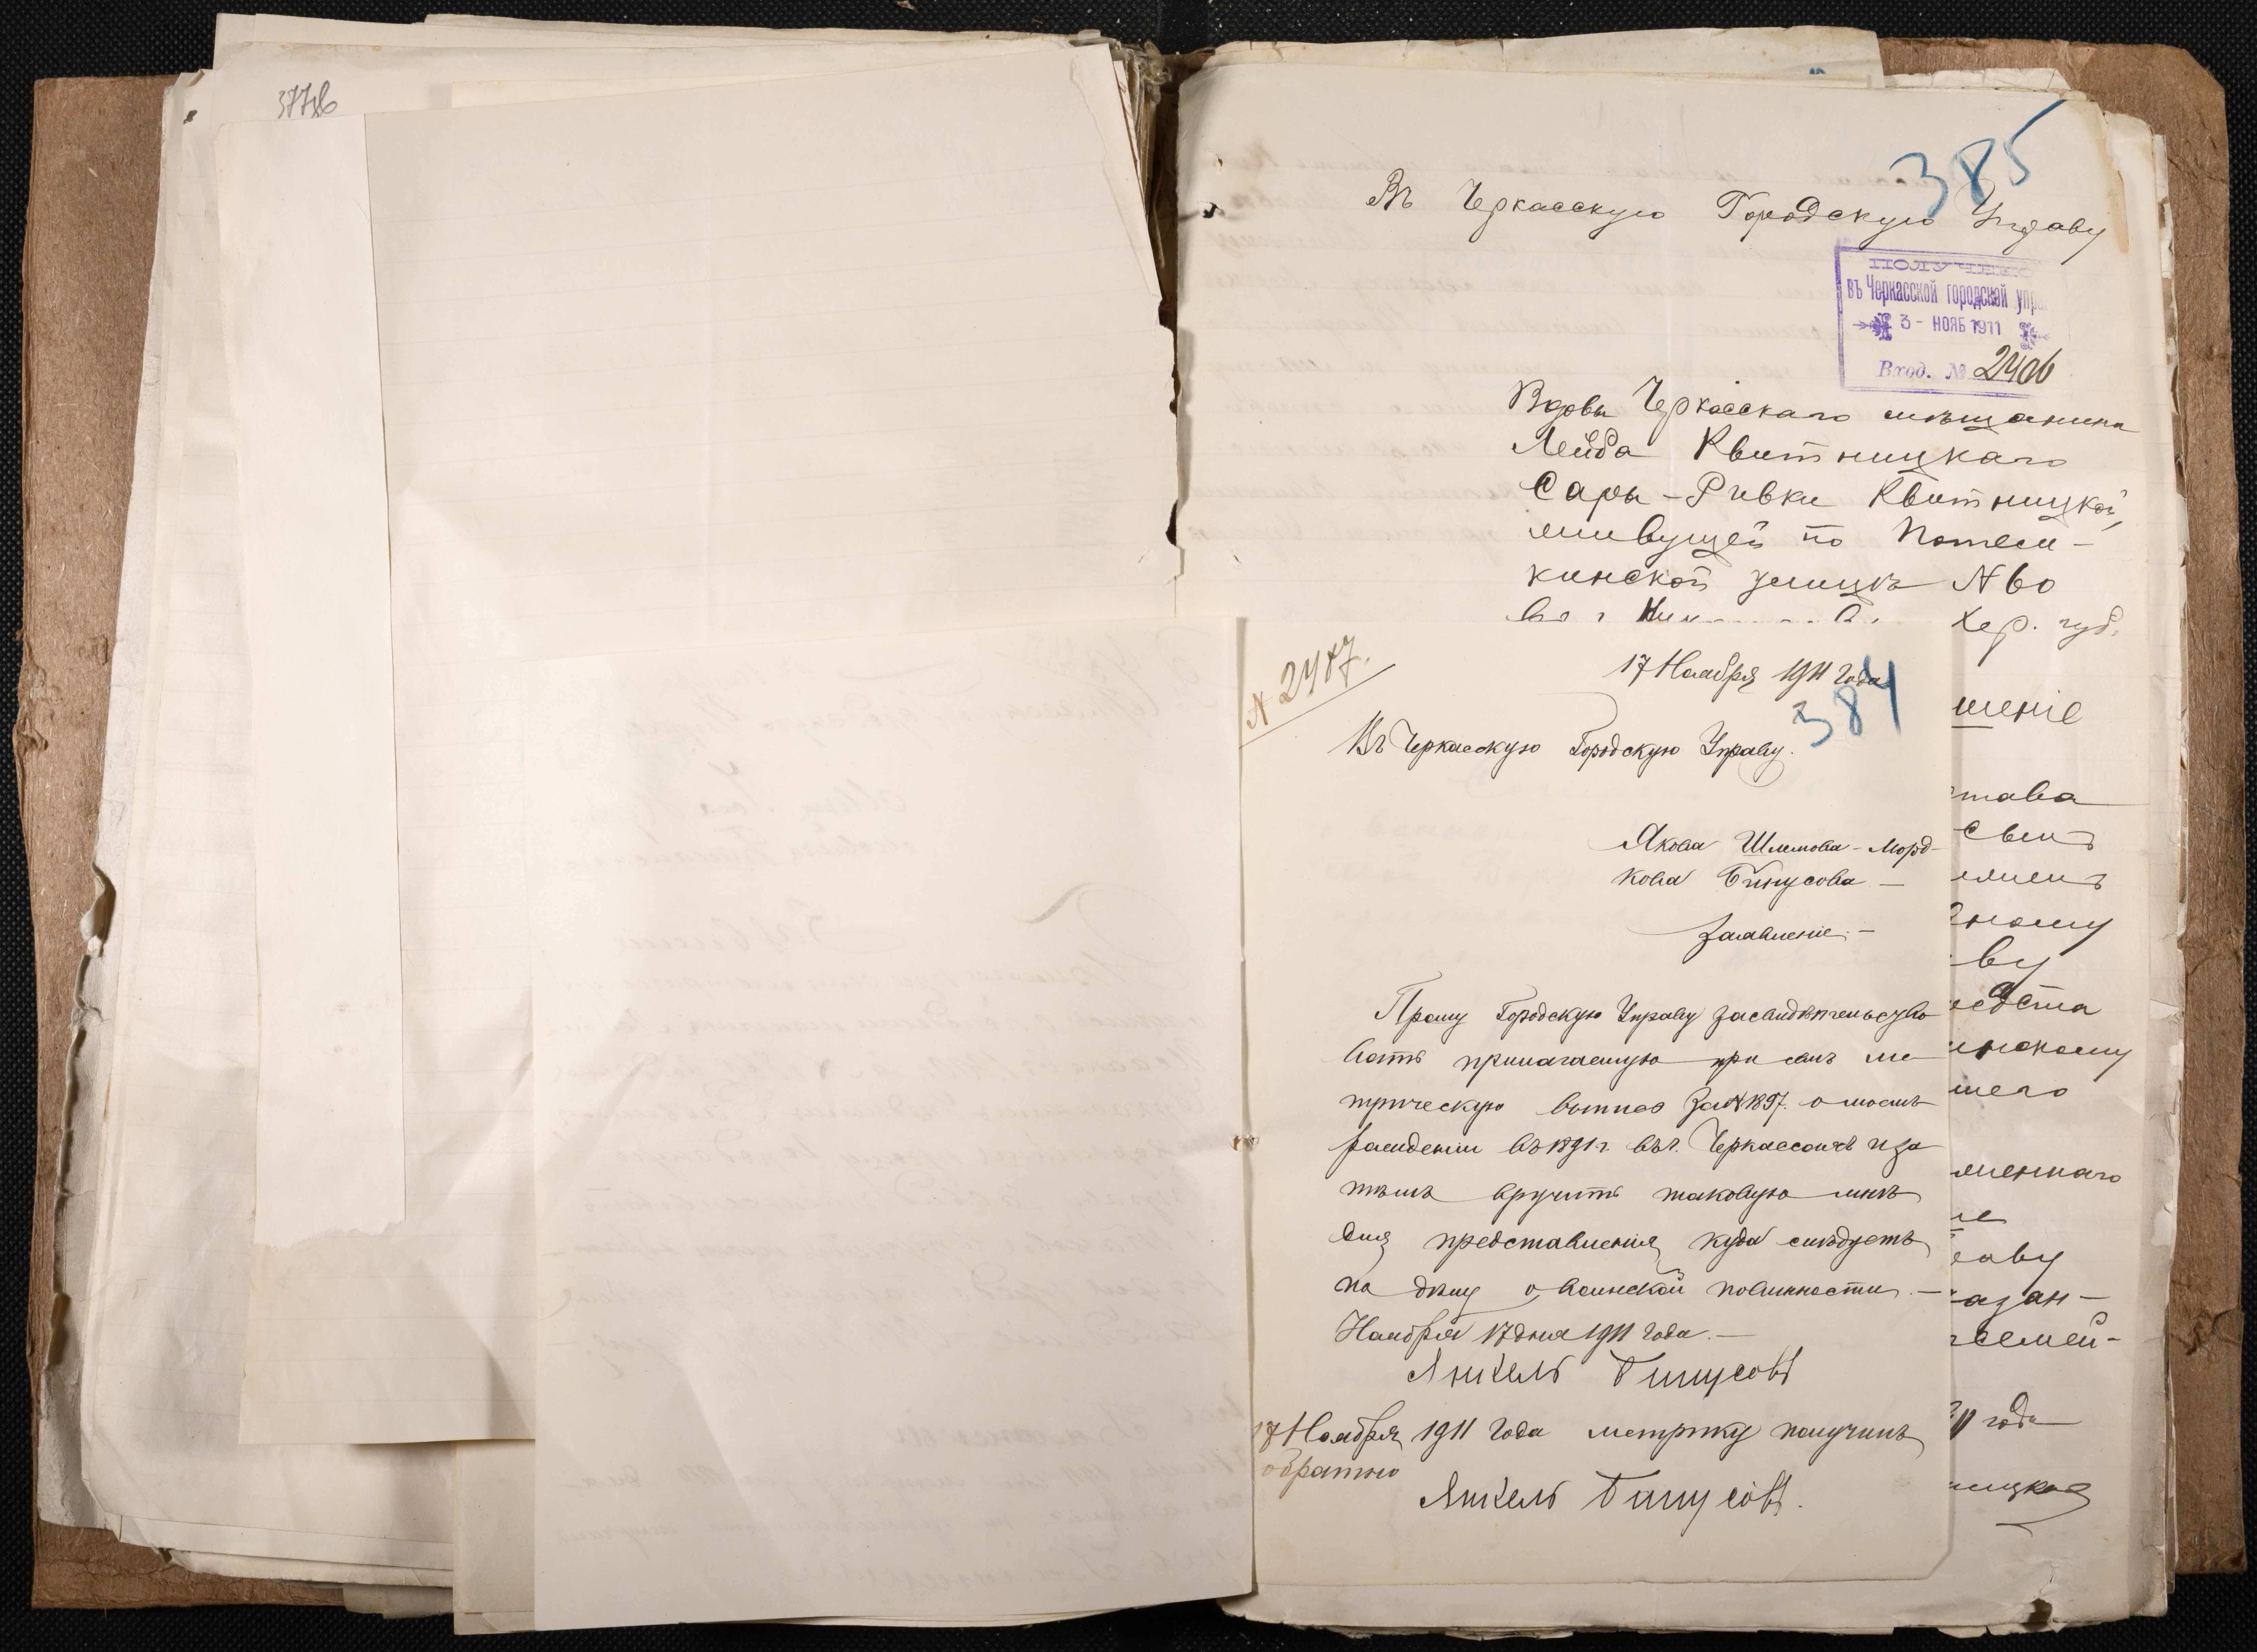 377об
385
Въ Черкасскую Городскую Управу
ПОЛУЧЕНО
въ Черкасской городской упр
3 - НОЯБ 1911
Вход. № 2406
Вдовы Черкасскаго мѣщанина
Лейба Квитницкаго
Сары-Ривки Квитницкой,
живущей по Потем-
кинской улицѣ № 60
Хер. губ.
шеніе
става
свит
ному
ву
едста
инскому
шего
меннаго
раву
казан-
семей-
11 года
ницкая
№ 2487.
17 Ноября 1911 года
384
Въ Черкасскую Городскую Управу.
Якова Шлемова-Морд-
кова Бинусова
Заявленіе.-
Прошу Городскую Управу засвидѣтельство
вать прилагаемую при семъ ме
трическую выпись за № 1897. о моемъ
рождении въ 1891 г. въ г. Черкассахъ и за
тѣмъ вручить таковую мнѣ
для представленія, куда слѣдуетъ
по дѣлу о воинской повинности.-
Ноября 17 дня 1911 года.-
Янкель Бинусовъ
17 Ноября 1911 года метрику получилъ
обратно
Янкель Бинусовъ.